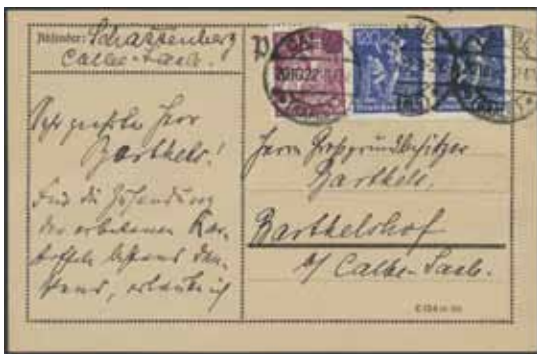 Absender: Scharfenberg
Calbe-Saale.
Sehr geehrter Herr
Barthels!
Für die Zusendung
der erbetenen Kar-
toffeln bestens dan-
kend, erlaube ich
P
20
20.10.22
(SAALE)
Herrn Großgrundbesitzer
Barthels,
Barthelshof
b/ Calbe-Saale.